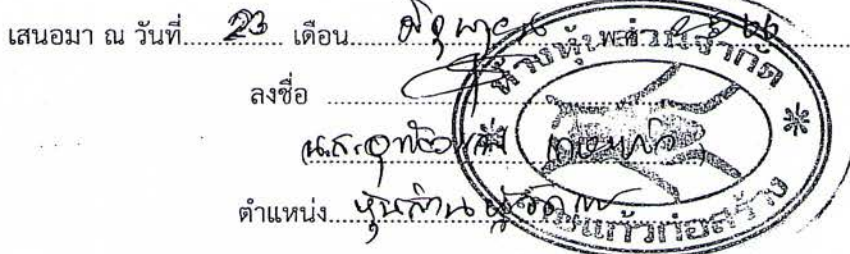 เสนอมา ณ วันที่ 23 เดือน มิถุนายน พ.ศ. 2566
ลงชื่อ
(น.ส.
ตำแหน่ง หุ้นส่วนผู้จัดการ
ห้างหุ้นส่วนจำกัด
แก้วก่อสร้าง